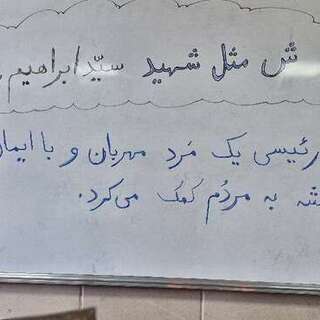 ش مثل شهید سیّد ابراهیم
رئیسی یک مَرد مهربان و با ایمان
به مردُم کُمک می‌کرد.